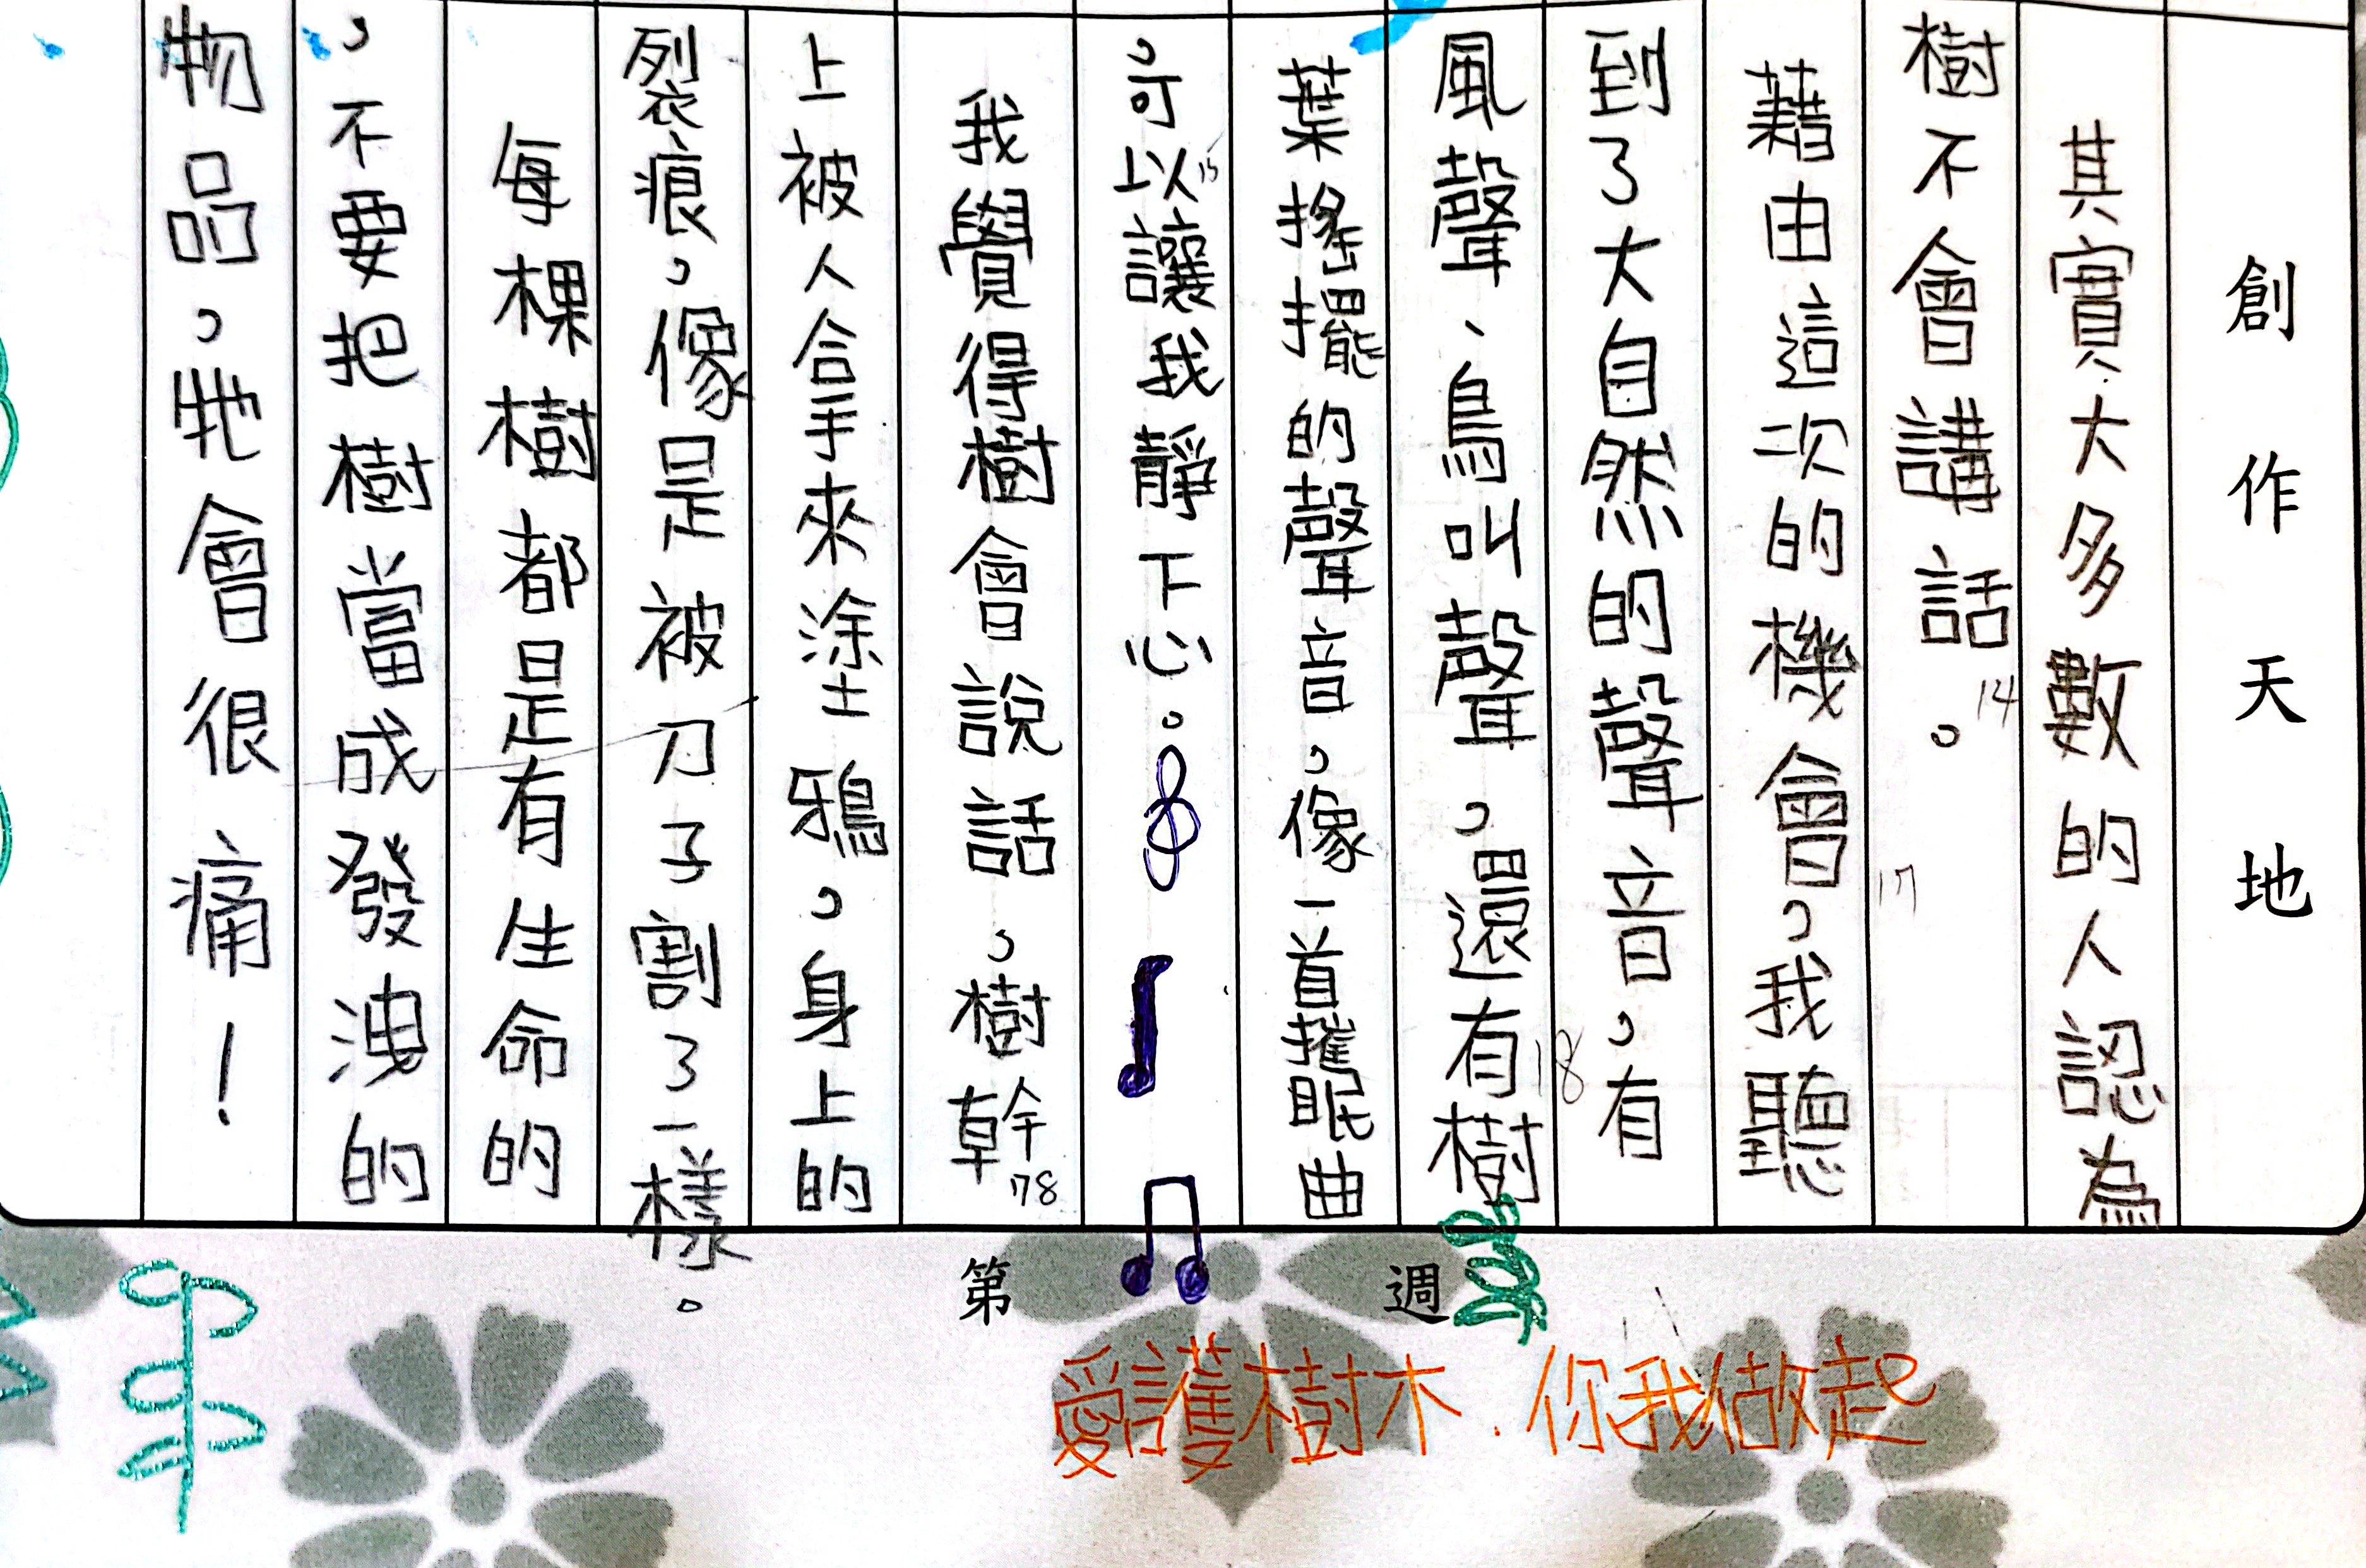 創作天地
其實大多數的人認為
樹不會講話。14
17
藉由這次的機會，我聽
到了大自然的聲音，有
18
風聲、鳥叫聲，還有樹
葉搖擺的聲音，像一首摧眠曲
，可以15讓我靜下心。
我覺得樹會說話，樹幹78
上被人合手來塗鴉，身上的
裂痕，像是被刀子割了一樣。
每棵樹都是有生命的
，不要把樹當成發洩的
物品，牠會很痛！
第 週
愛護樹木.你我做起